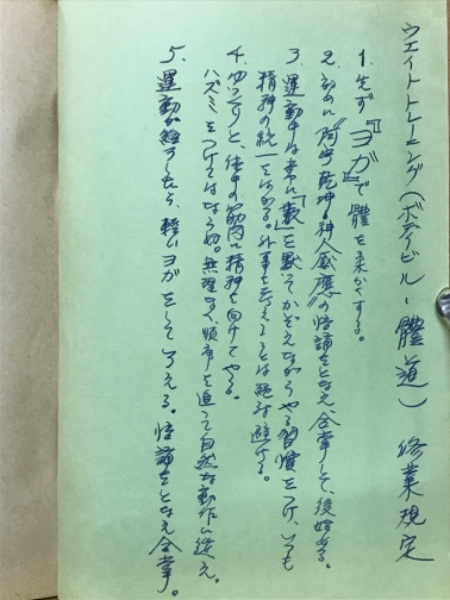 ウエイトトレーニング(ボディビル・體道) 修業規定
1. 先ず『ヨガ』で體を柔かくする。
2. 初めに"阿吽乾坤・神人感應"の悟誦をとなえ、合掌して、後始める。
3. 運動中は常に「數」を默ってかぞえながらやる習慣をつけ、いつも
精神の統一をはかる。外事を考えることは絶対避ける。
4. ゆっくりと、体中の筋肉に精神を向けてやる。
ハズミをつけてはならぬ。無理なく、順序を追って自然な動作に従え。
5. 運動が終了したら、軽いヨガをして終える。悟誦をとなえ合掌。